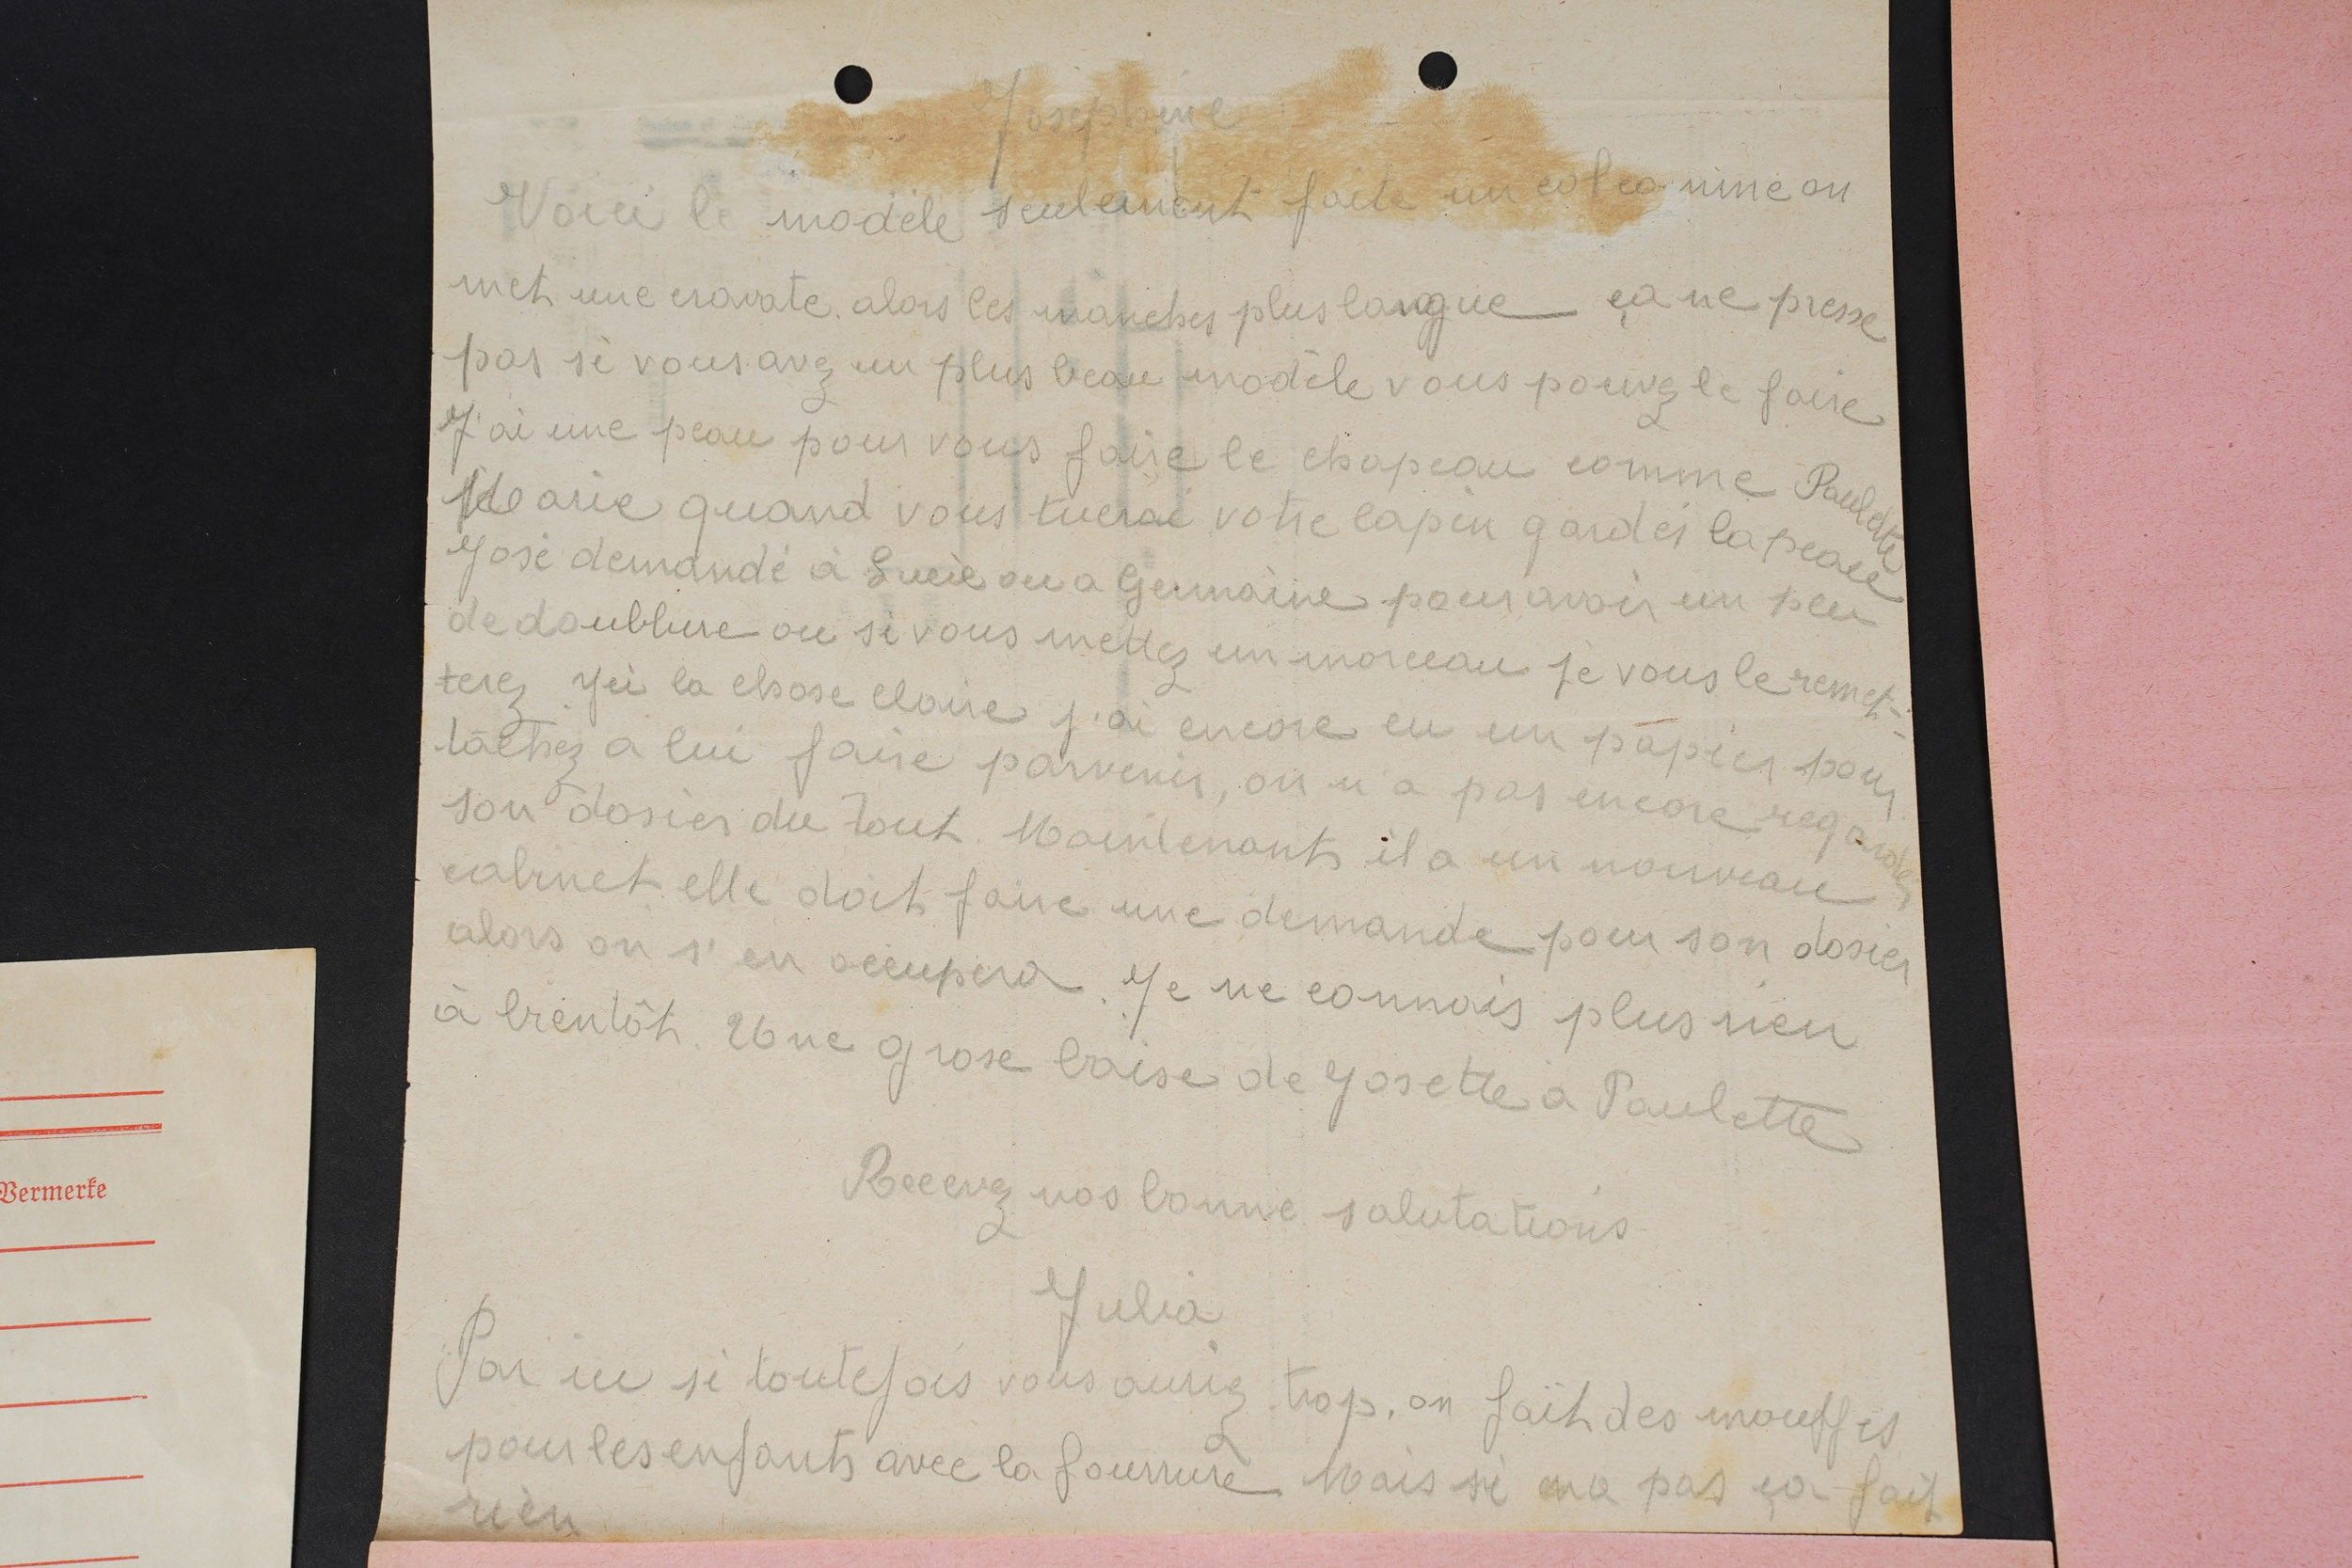 Josephine
Voici le modèle seulement faite un col ca nine on
met une cravate. alors les manches plus langue ça ne presse
pas si vous avez un plus beau modèle vous pouvez le faire
J'ai une peau pour vous faire le chapeau comme Paulette
Marie quand vous tuerai votre lapin gardés la peau
José demandé à Lucie ou a Germaine pour avoir un peu
de doubblure ou si vous mettez un morceau je vous le remet-
terez Yei la chose claire j'ai encore eu un papier pour
tâchez a lui faire parvenir, on n'a pas encore regarder
son dosier du tout. Maintenants il a un nouveau
cabinet elle doit faire une demande pour son dosier
alors on s'en occupera. Je ne connais plus rien
à bientôt. Une grose baise de Josette a Paulette
Recevez nos bonne salutations
Julia
Par ici si toutefois vous auriez trop, on fait des mouffes
pour les enfants avec la fourrure Mais si on a pas ça fait
rien
Vermerke